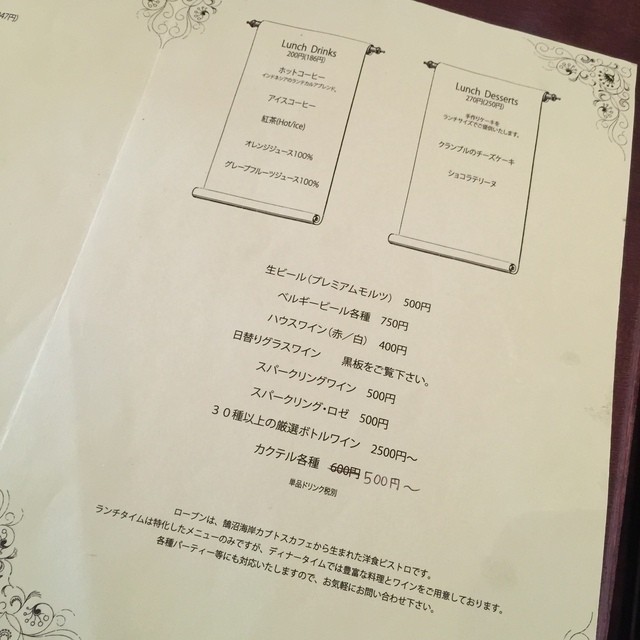 47円)
Lunch Drinks
200円(186円)
ホットコーヒー
インドネシアのランテカルアブレンド。
アイスコーヒー
紅茶(Hot/ice)
オレンジジュース100%
グレープフルーツジュース100%
Lunch Desserts
270円(250円)
手作りケーキを
ランチサイズでご提供いたします。
クランブルのチーズケーキ
ショコラテリーヌ
生ビール(プレミアムモルツ) 500円
ベルギービール各種 750円
ハウスワイン(赤/白) 400円
日替りグラスワイン 黒板をご覧下さい。
スパークリングワイン 500円
スパークリング・ロゼ 500円
30種以上の厳選ボトルワイン 2500円〜
カクテル各種 600円 500円〜
単品ドリンク税別
ローブンは、鵠沼海岸カブトスカフェから生まれた洋食ビストロです。
ランチタイムは特化したメニューのみですが、ディナータイムでは豊富な料理とワインをご用意しております。
各種パーティー等にも対応いたしますので、お気軽にお問い合わせ下さい。